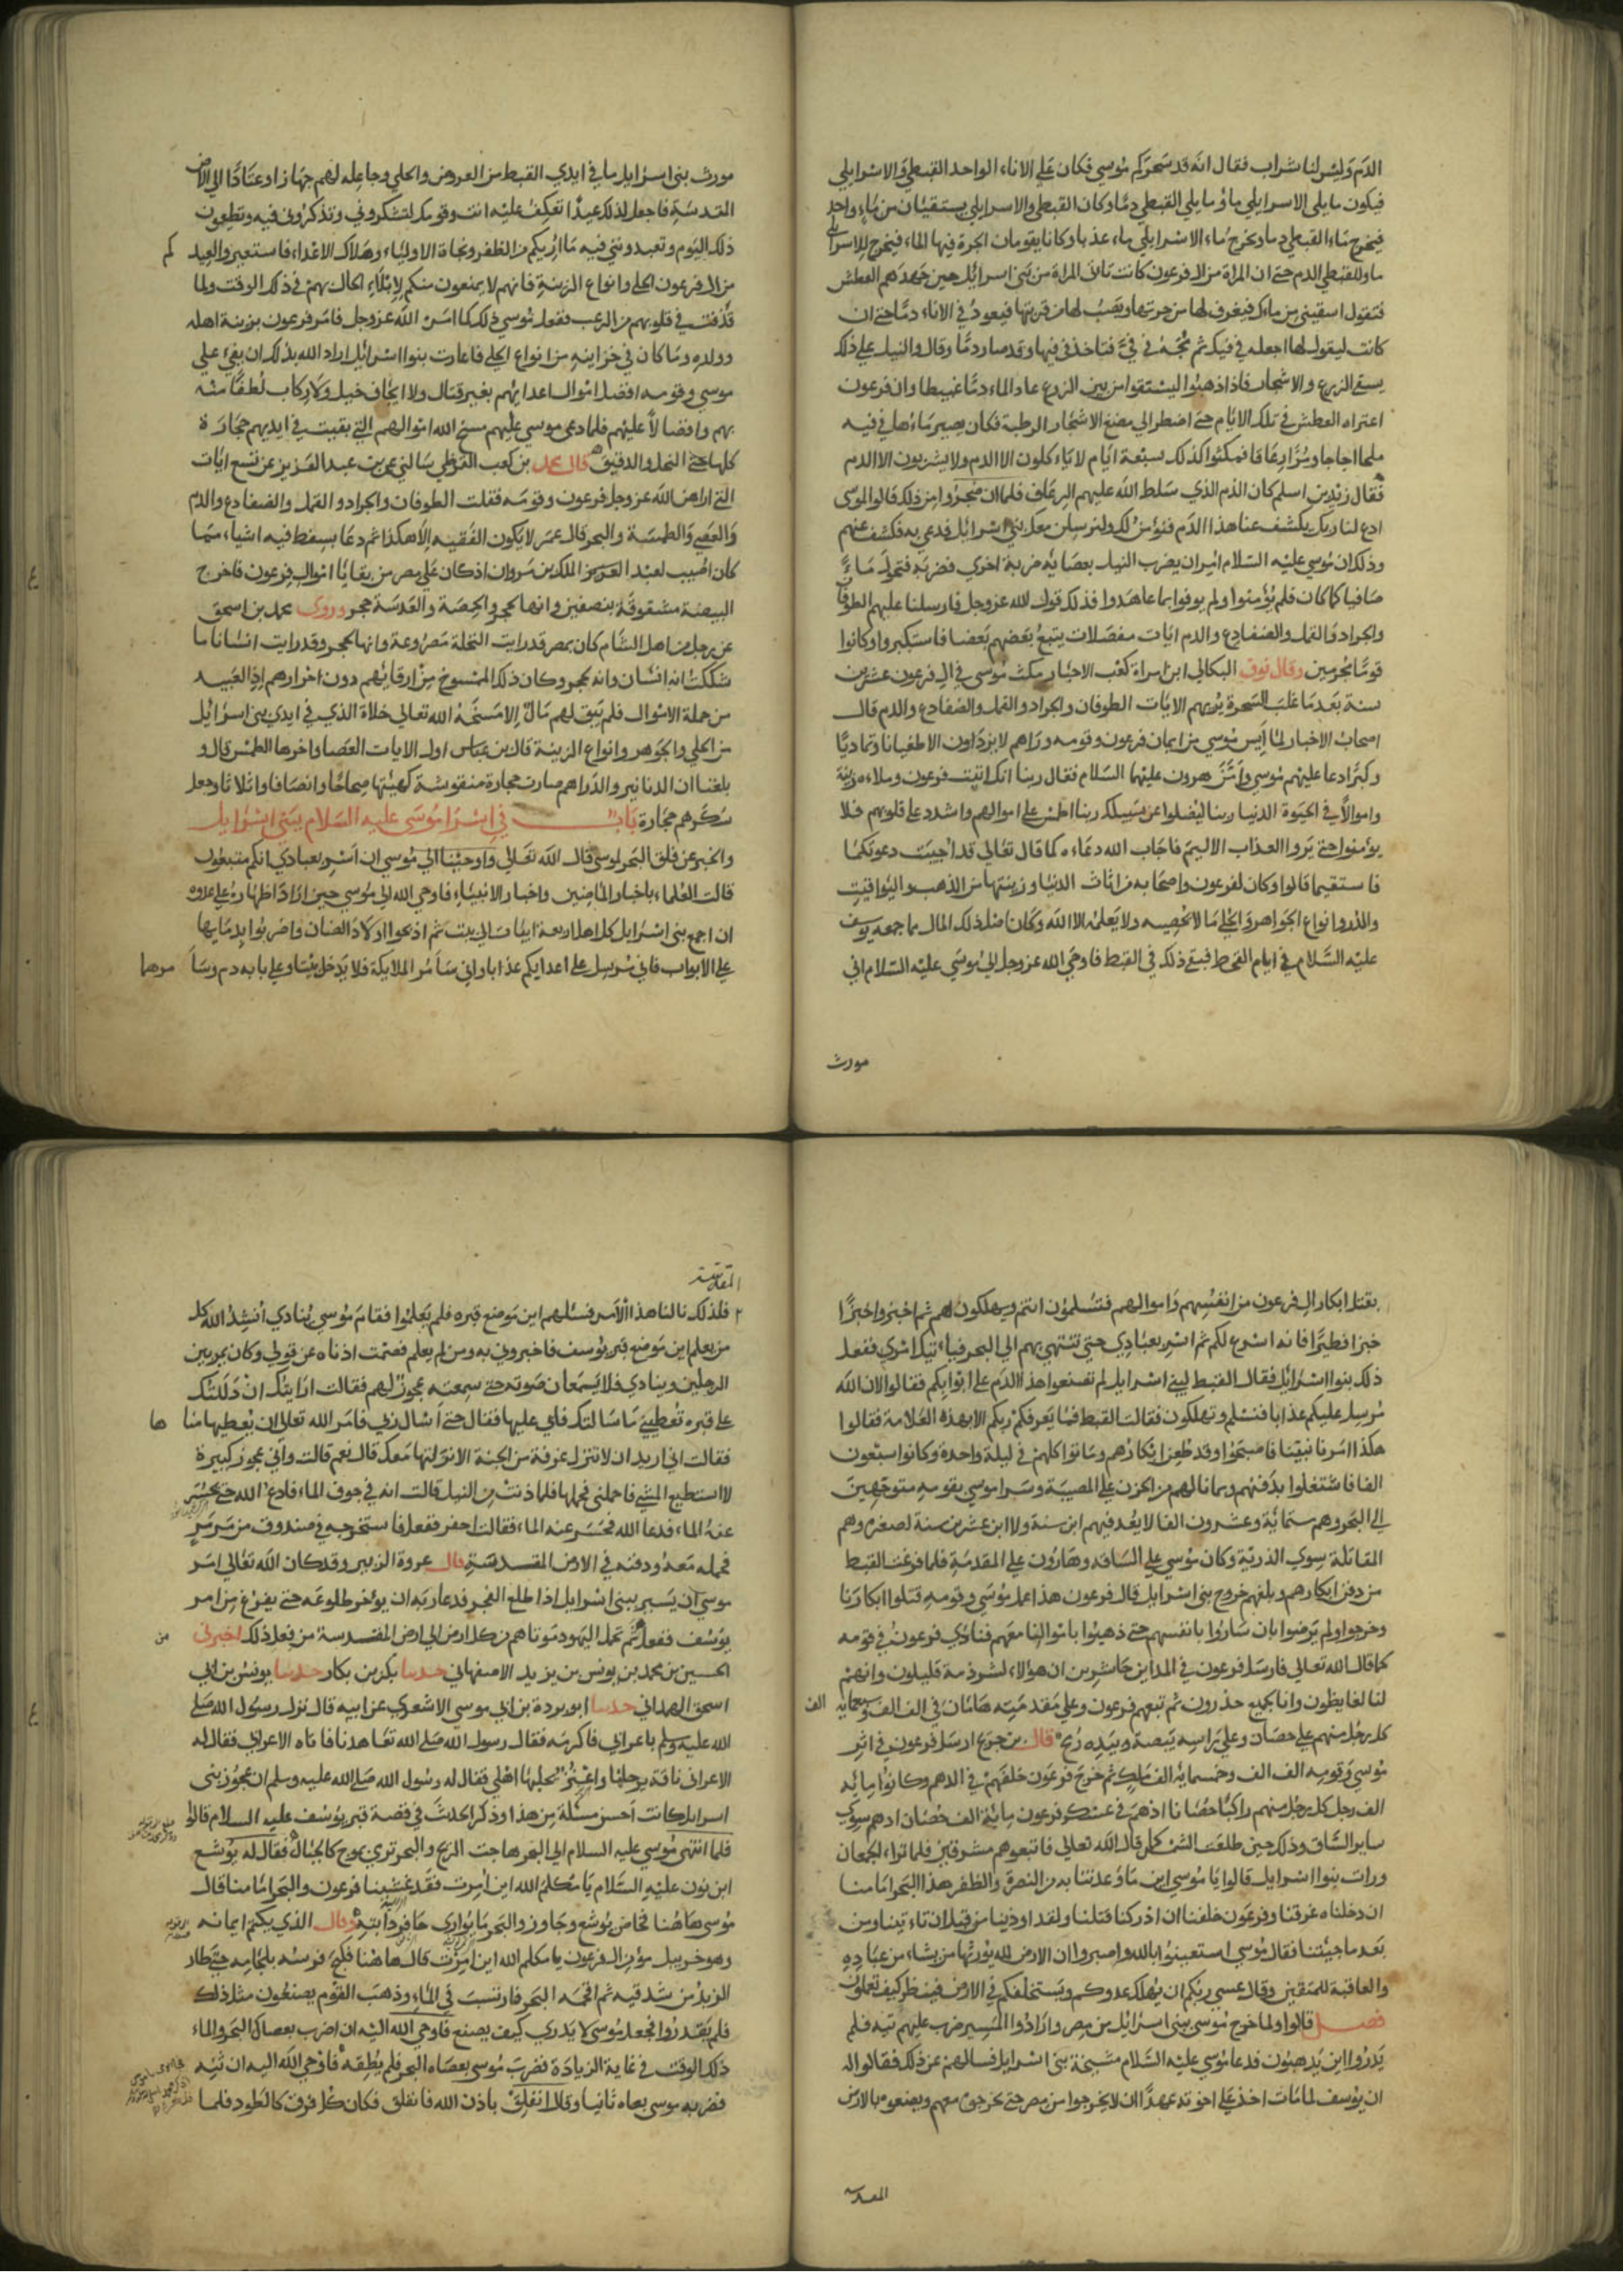 الدم وليس لنا شراب فقال انه قد سحركم موسي فكان علي الاناء الواحد القبطي والاسرايلي
فيكون ما يلي الاسرايلي ماء وما يلي القبطي دما وكان القبطي والاسرايلي يستقيان من ماء واحد
فيخرج ماء القبطي دما ويخرج ماء الاسرايلي ماء عذبا وكانا يقومان الجرة فيها الماء فيخرج للاسرايلي
ماء وللقبطي الدم حتي ان المراة من ال فرعون كانت تاتي المراة من بني اسرايل حين جهدهم العطش
فتقول اسقيني من ماءك فيغرف لها من جرتها ويصب لها من قربتها فيعود في الاناء دما حتي ان
كانت ليقول لها اجعله في فيك ثم مجه في في فتاخذ في فيها وقد صار دما وقال والنيل علي ذلك
يسقي الزرع والاشجار فاذا ذهبوا ليستقوا من بين الزرع عاد الماء دما عبيطا وان فرعون
اعتراه العطش في تلك الايام حتي اضطر الي مضغ الاشجار الرطبة فكان يصير ماءها في فيه
ملحا اجاجا ومرا زعاقا فمكثوا كذلك سبعة ايام لا ياكلون الا الدم ولا يشربون الا الدم
فقال زيد بن اسلم كان الدم الذي سلط الله عليهم الرعاف فلما ان ضجروا من ذلك قالوا لموسي
ادع لنا ربك يكشف عنا هذا الدم فنؤمن لك ولنرسلن معك بني اسرايل فدعي ربه فكشف عنهم
وذلك ان موسي عليه السلام امر ان يضرب النيل بعصاه ضربة اخري فضربه فتحول ماء
صافيا كما كان فلم يؤمنوا ولم يوفوا بما عاهدوا فذلك قول الله عز وجل فارسلنا عليهم الطوفان
والجراد والقمل والضفادع والدم ايات مفصلات يتبع بعضهم بعضا فاستكبروا وكانوا
قوما مجرمين وقال نوف البكالي ابن امراة كعب الاحبار مكث موسي في ال فرعون عشرين
سنة بعد ما غلب السحرة يريهم الايات الطوفان والجراد والقمل والضفادع والدم قال
اصحاب الاخبار لما ايس موسي من ايمان فرعون وقومه وراهم لا يزدادون الا طغيانا وتماديا
وكبرا دعا عليهم موسي وامن هرون عليهما السلام فقال ربنا انك اتيت فرعون وملاءه زينة
واموالا في الحيوة الدنيا ربنا ليضلوا عن سبيلك ربنا اطمس علي اموالهم واشدد علي قلوبهم فلا
يؤمنوا حتي يروا العذاب الاليم فاجاب الله دعاءه كما قال تعالي قد اجيبت دعوتكما
فاستقيما قالوا وكان لفرعون واصحابه من اثاث الدنيا وزينتها من الذهب واليواقيت
والدر وانواع الجواهر والحلي ما لا يحصيه ولا يعلمه الا الله وكان اصل ذلك المال مما جمعه يوسف
عليه السلام في ايام القحط فبقي ذلك في القبط فاوحي الله عز وجل الي موسي عليه السلام اني
مورث
مورث بني اسرايل ما في ايدي القبط من العروض والحلي وجاعله لهم جهازا وعتادا الي الارض
المقدسة فاجعل لذلك عيدا تعكف عليه انت وقومك لتشكروني وتذكروني فيه وتطيعون
ذلك اليوم وتعبدونني فيه ما اريكم من الظفر ونجاة الاولياء وهلاك الاعداء فاستعيروا لعيدكم
من ال فرعون الحلي وانواع الزينة فانهم لا يمنعون منكم لابتلاء الحال بهم في ذلك الوقت ولما
قذفت في قلوبهم من الرعب ففعل موسي ذلك كما امره الله عز وجل فامر فرعون بزينة اهله
وولده وما كان في خزاينه من انواع الحلي فاعارت بنوا اسرائيل اراد الله بذلك ان يفيء علي
موسي وقومه افضل اموال اعدائهم بغير قتال ولا ايجاف خيل ولا ركاب لطفا منه
بهم وافضالا عليهم فلما دعي موسي عليهم مسخ الله اموالهم التي بقيت في ايديهم حجارة
كلها حتي النخل والدقيق قال محمد بن كعب القرظي سالني عمر بن عبد العزيز عن تسع ايات
التي اراهن الله عز وجل فرعون وقومه فقلت الطوفان والجراد والقمل والضفادع والدم
والعصي والطمسة والبحر قال عمر لا يكون الفقيه الا هكذا ثم دعا بسفط فيه اشياء مما
كان اصيب لعبد العزيز الملك بن مروان اذ كان علي مصر من بقايا اموال فرعون فاخرج
البيضة مشقوقة بنصفين وانها لحجر والحمصة والعدسة حجر وروي محمد بن اسحق
عن رجل من اهل الشام كان بمصر قد رايت النخلة مصروعة وانها لحجر وقد رايت انسانا ما
شككت انه انسان وانه لحجر وكان ذلك المسوخ من ارقائهم دون احرارهم اذ العبيد
من جملة الاموال فلم يبق لهم مال الا مسخه الله تعالي خلاة الذي في ايدي بني اسرائيل
من الحلي والجوهر وانواع الزينة قال بن عباس اول الايات العصا واخرها الطمس قال و
بلغنا ان الدنانير والدراهم صارت حجارة منقوشة كهيئتها صحاحا وانصافا واثلاثا وجعل
سكرهم حجارة باب في اسرا موسي عليه السلام ببني اسرايل
والخبر عن فلق البحر لموسي قال الله تعالي واوحينا الي موسي ان اسر بعبادي انكم متبعون
قالت العلماء باخبار الماضين واخبار الانبياء فاوحي الله الي موسي حين اراد اظهاره علي عدوه
ان اجمع بني اسرايل كل اهل اربعة ابيات الي بيت ثم اذبحوا اولاد الضان واضربوا بدمايها
علي الابواب فاني مرسل علي اعدايكم عذابا واني سامر الملايكة فلا يدخل بيتا وعلي بابه دم وسا مرها
بقتل ابكار ال فرعون من انفسهم واموالهم فتسلمون انتم ويهلكون هم ثم اخبزوا خبزا
خبزا فطيرا فانه اسرع لكم ثم اسر بعبادي حتي تنتهي بهم الي البحر فياتيك امري ففعل
ذلك بنوا اسرائيل فقال القبط لبني اسرايل لم تصنعوا هذا الدم علي ابوابكم فقالوا لان الله
مرسل عليكم عذابا فنسلم وتهلكون فقالت القبط فما يعرفكم ربكم الا بهذه العلامة فقالوا
هكذا امرنا نبينا فاصبحوا وقد طعن ابكارهم وماتوا كلهم في ليلة واحدة وكانوا سبعون
الفا فاشتغلوا بدفنهم وبما نالهم من الحزن علي المصيبة وسرا موسي بقومه متوجهين
الي البحر وهم ستماية وعشرون الفا لا يعد فيهم ابن سنة ولا ابن عشرين سنة لصغره وهم
المقاتلة سوي الذرية وكان موسي علي الساقة وهارون علي المقدمة فلما فرغت القبط
من دفن ابكارهم وبلغهم خروج بني اسرايل قال فرعون هذا عمل موسي وقومه قتلوا ابكارنا
وخرجوا ولم يرضوا بان ساروا بانفسهم حتي ذهبوا باموالنا معهم فنادي فرعون في قومه
كما قال الله تعالي فارسل فرعون في المداين حاشرين ان هؤلاء لشرذمة قليلون وانهم
لنا لغايظون وانا لجميع حذرون ثم تبعهم فرعون وعلي مقدمته هامان في الف الف وسبعماية الف
كل رجل منهم علي حصان وعلي راسه بيضة وبيده رمح قال بن جريج ارسل فرعون في اثر
موسي وقومه الف الف وخمسماية الف ملك ثم خرج فرعون خلفهم في الدهم وكانوا ماية
الف رجل كل رجل منهم راكبا حصانا ادهم في عسكر فرعون مائة الف حصان ادهم سوي
ساير الشاق وذلك حين طلعت الشمس كما قال الله تعالي فاتبعوهم مشرقين فلما تراء الجمعان
ورات بنوا اسرايل قالوا يا موسي اين ما وعدتنا به من النصر والظفر هذا البحر امامنا
ان دخلناه غرقنا وفرعون خلفنا ان ادركنا قتلنا ولقد اوذينا من قبل ان تاتينا ومن
بعد ما جيتنا فقال موسي استعينوا بالله واصبروا ان الارض لله يورثها من يشاء من عباده
والعاقبة للمتقين وقال عسي ربكم ان يهلك عدوكم ويستخلفكم في الارض فينظر كيف تعملون
فصل قالوا ولما خرج موسي ببني اسرائيل من مصر وارادوا المسير ضرب عليهم تيه فلم
يدروا اين يذهبون فدعا موسي عليه السلام مشيخة بني اسرايل فسالهم عن ذلك فقالوا له
ان يوسف لما مات اخذ علي اخوته عهدا ان لا يخرجوا من مصر حتي يخرجوه معهم ويضعوه بالارض
المقدسة
المقدسة
فلذلك نالنا هذا الامر فسئلهم اين موضع قبره فلم يعلموا فقام موسي ينادي انشد الله كل
من يعلم اين موضع قبر يوسف فاخبروني به ومن لم يعلم فصمت اذناه عن قولي وكان يمر بين
الرجلين وينادي فلا يسمعان صوته حتي سمعته عجوز لهم فقالت ارايتك ان دللتك
علي قبره تعطيني ما سالتك فابي عليها فقال حتي اسال ربي فامر الله تعالي ان يعطيها مناها
فقالت اني اريد ان لا تنزل غرفة من الجنة الا نزلتها معك قال نعم قالت واني عجوز كبيرة
لا استطيع المشي فاحملني فحملها فلما دنت من النيل قالت انه في جوف الماء فادع الله حتي يحسر
عنه الماء فدعا الله فحسر عنه الماء فقالت احفر ففعل فاستخرجه في صندوق من مرمر
فحمله معه ودفنه في الارض المقدسة قال عروة الزبير وقد كان الله تعالي امر
موسي ان يسير ببني اسرايل اذا طلع الفجر فدعا ربه ان يؤخر طلوعه حتي يفرغ من امر
يوسف ففعل ثم تحمل اليهود موتاهم من كل ارض الي ارض المقدسة من فعل ذلك اخبرني
الحسين بن محمد بن يونس بن يزيد الاصفهاني حدثنا بكر بن بكار حدثنا يونس بن ابي
اسحق الهمداني حدثنا ابو بردة بن ابي موسي الاشعري عن ابيه قال نزل رسول الله صلي
الله عليه وسلم باعرابي فاكرمه فقال رسول الله صلي الله تعاهدنا فاتاه الاعرابي فقال له
الاعرابي ناقة برحلها واعنز يحلبها اهلي فقال له رسول الله صلي الله عليه وسلم ان عجوز بني
اسرايل كانت احسن مسئلة من هذا وذكر الحديث في قصة قبر يوسف عليه السلام قالوا
فلما انتهي موسي عليه السلام الي البحر هاجت الريح والبحر تري بموج كالجبال فقال له يوشع
ابن نون عليه السلام يا مكلم الله اين امرت فقد غشينا فرعون والبحر امامنا قال
موسي هاهنا فخاض يوشع وجاوز والبحر ما يواري حافر دابته وقال الذي يكتم ايمانه
وهو خربيل مؤمن ال فرعون يا مكلم الله اين امرت قال هاهنا فكبح فرسه بلجامه حتي طار
الزبد من شدقيه ثم اقحمه البحر فارتسب في الماء وذهب القوم يصنعون مثل ذلك
فلم يقدروا فجعل موسي لا يدري كيف يصنع فاوحي الله اليه ان اضرب بعصاك البحر والماء
ذلك الوقت في غاية الزيادة فضرب موسي بعصاه البحر فلم يطقه فاوحي الله اليه ان ثنه
فضربه موسي بعصاه ثانيا وقال انفلق باذن الله فانفلق فكان كل فرق كالطود فلما